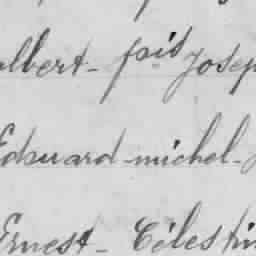 albert - fois Josep
Edouard - michel - J
Ernest - Célestin